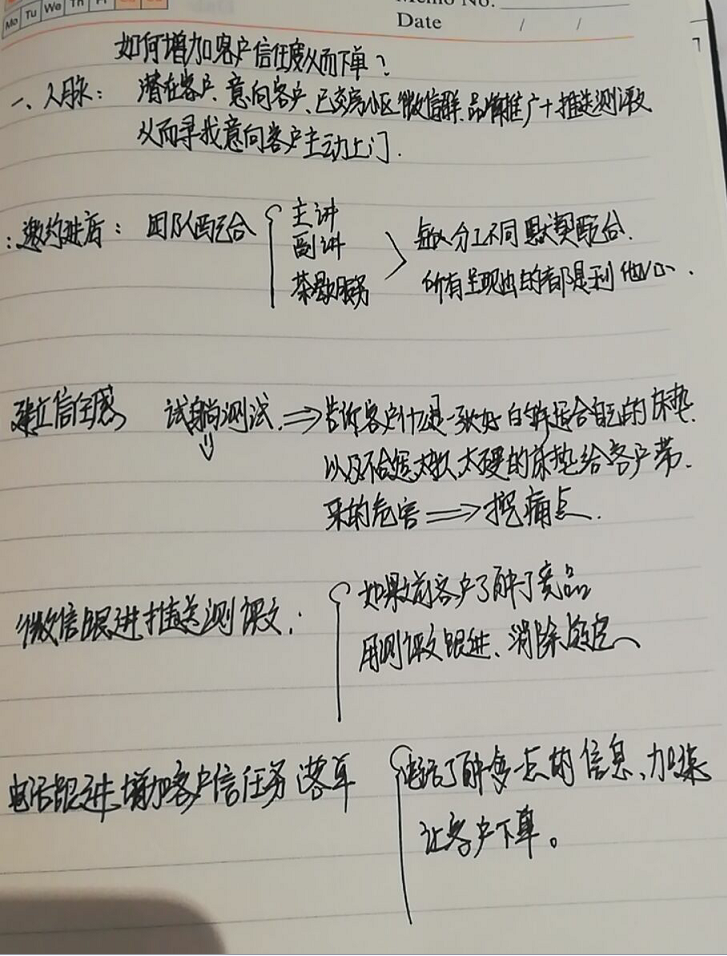 Mo Tu We Th Fr
Memo No.
Date / /
如何增加客户信任度从而下单？
一、人脉： 潜在客户、意向客户、已交房小区微信群、品牌推广+推送测评文
从而寻找意向客户主动上门.
：邀约进店： 团队配合 主讲
副讲
茶歇服务
每人分工不同默契配合.
所有呈现出的都是利他心.
建立信任感 试躺测试 ⇒ 告诉客户什么是一张好的 适合自己的床垫.
以及不合适太软、太硬的床垫给客户带.
来的危害 ⇒ 挖痛点.
微信跟进推送测评文： 如果之前客户了解了竞品
用测评文跟进、消除疑虑
电话跟进增加客户信任 落单 电话了解多一点的信息、加深
让客户下单。